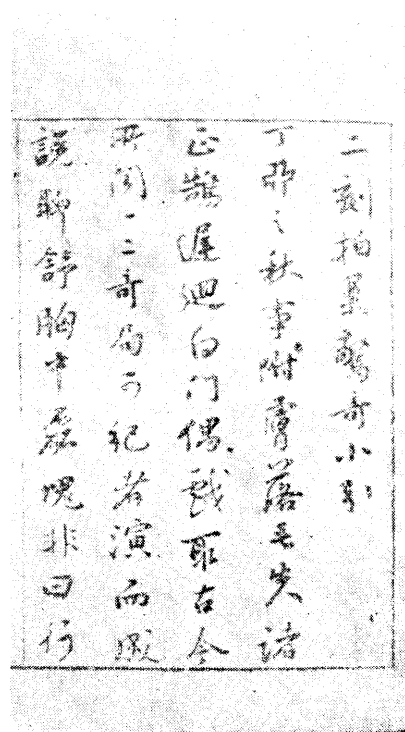 二刻拍案驚奇小引
丁卯之秋事附膚落毛失諸
正鵠遲迴白門偶戲取古今
所聞一二奇局可紀者演而成
說聊舒胸中磊塊非曰行